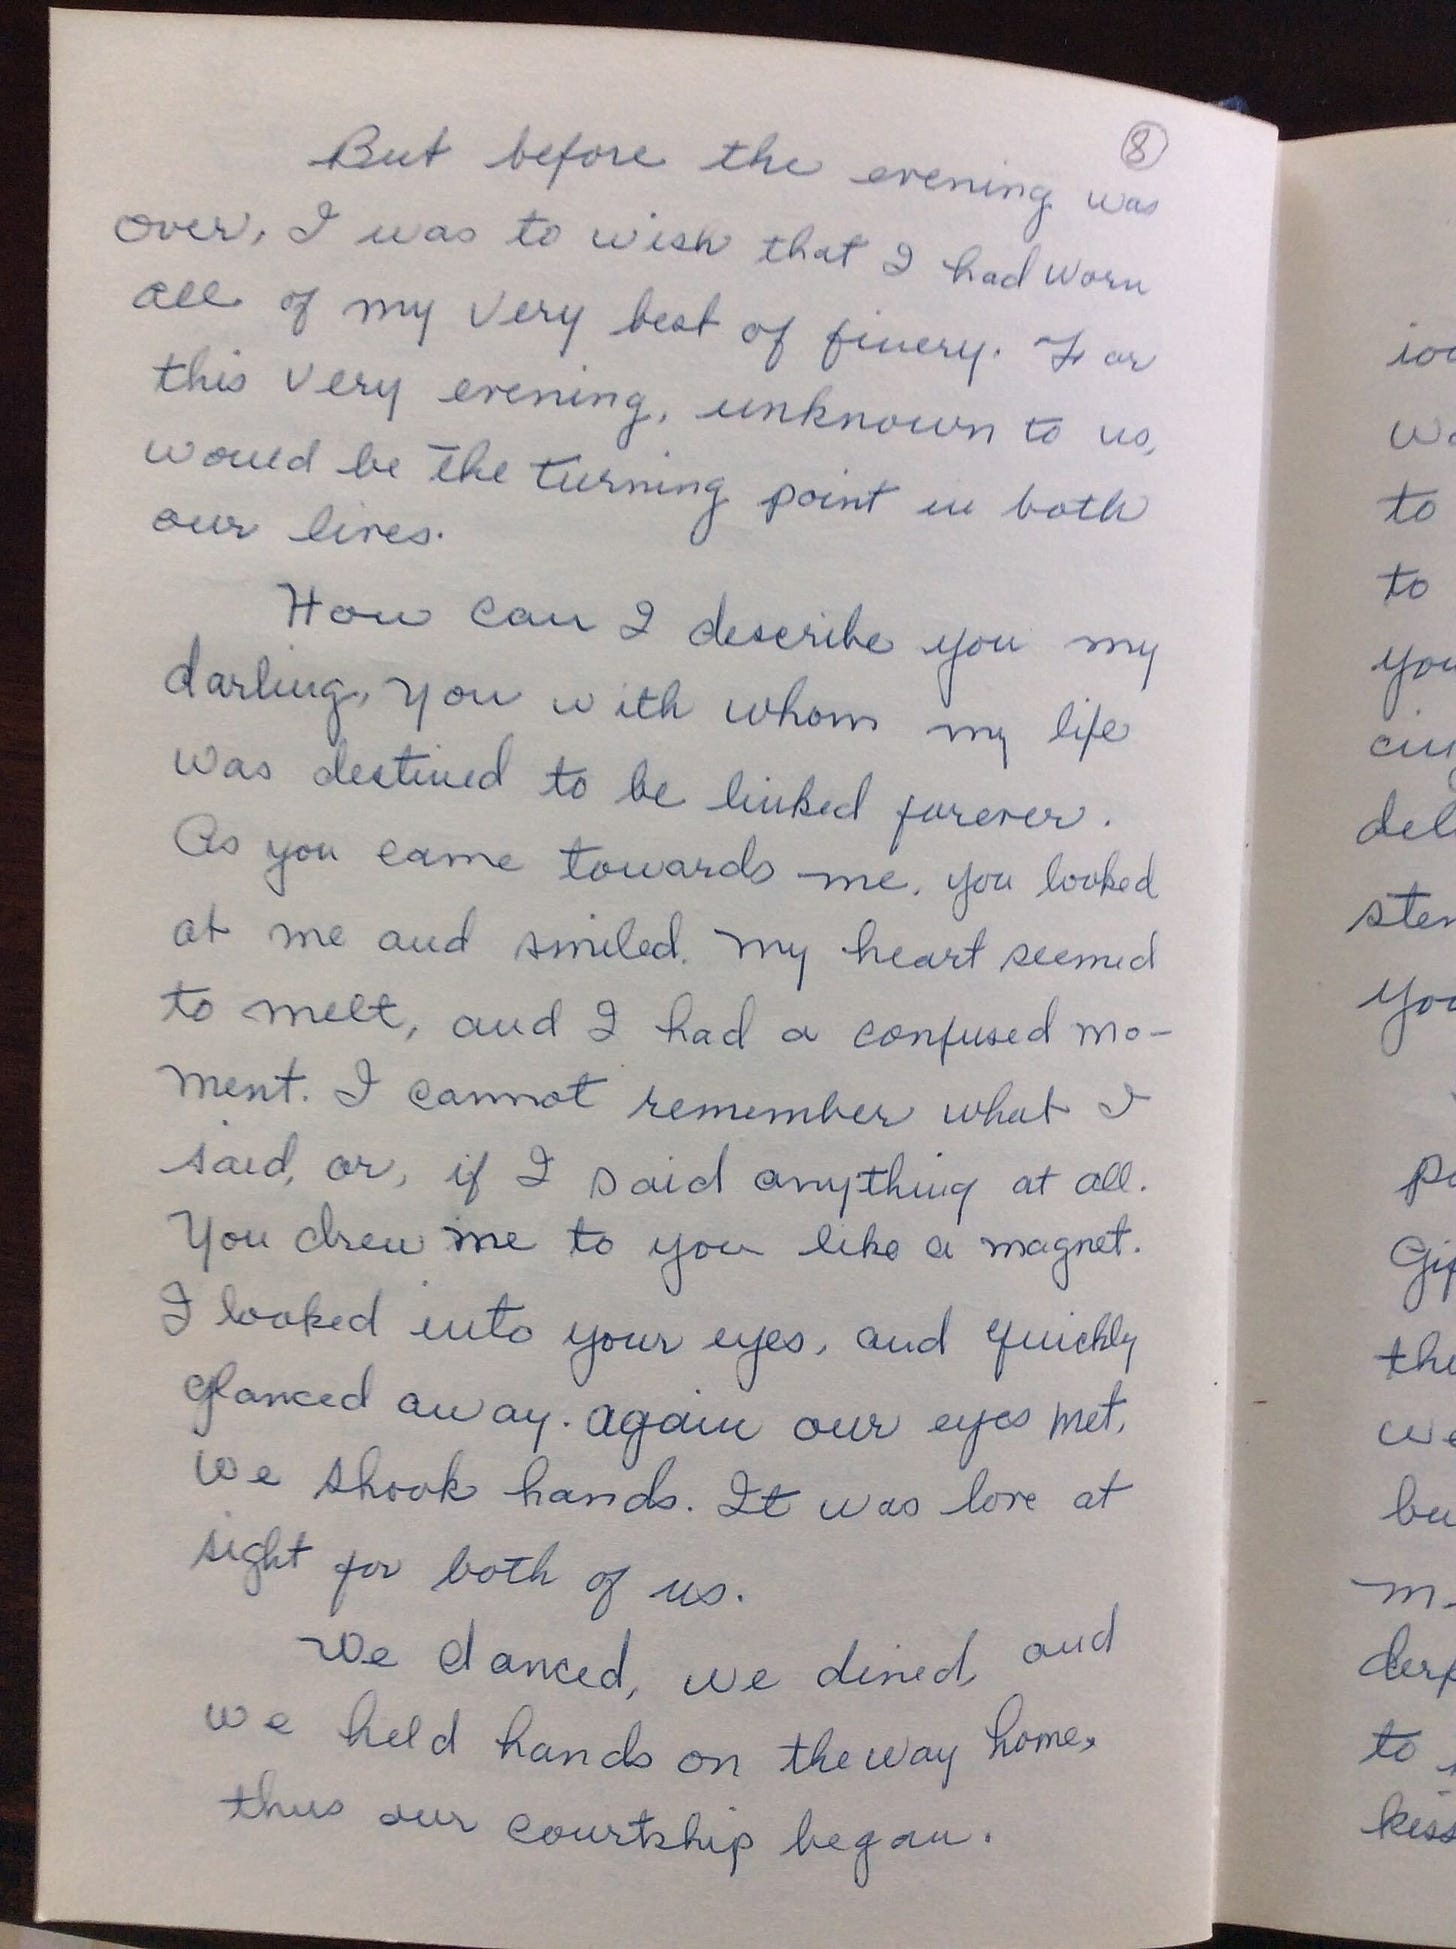 8
But before the evening was
over, I was to wish that I had worn
all of my very best of finery. For
this very evening, unknown to us,
would be the turning point in both
our lives.
How can I describe you my
darling, you with whom my life
was destined to be linked forever.
As you came towards me, you looked
at me and smiled. My heart seemed
to melt, and I had a confused mo-
ment. I cannot remember what I
said, or, if I said anything at all.
You drew me to you like a magnet.
I looked into your eyes, and quickly
glanced away. Again our eyes met,
we shook hands. It was love at
sight for both of us.
We danced, we dined, and
we held hands on the way home,
thus our courtship began.
to
to